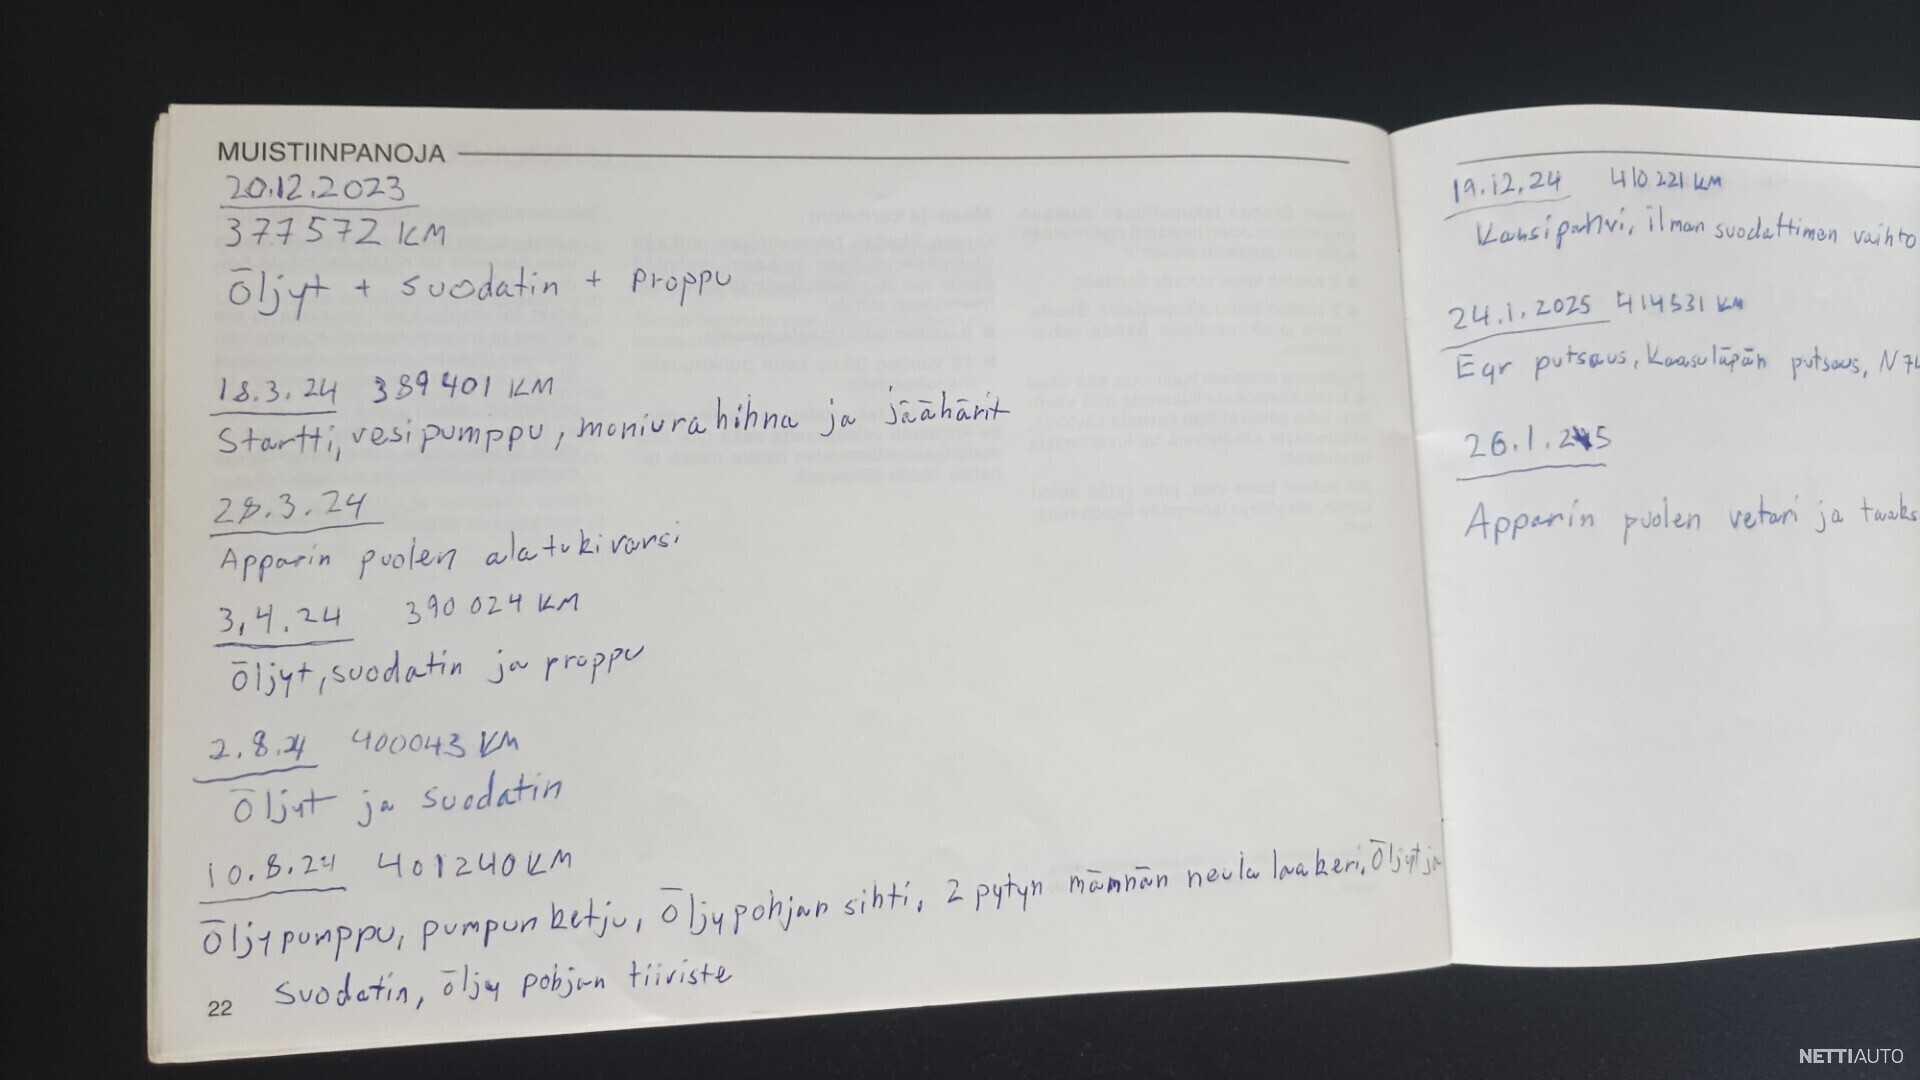 MUISTIINPANOJA
20.12.2023
377572 KM
Öljyt + suodatin + proppu
18.3.24 389401 KM
Startti, vesipumppu, moniurahihna ja jäähärit
28.3.24
Apparin puolen alatukivarsi
3,4.24 390024 KM
Öljyt, suodatin ja proppu
2.8.24 400043 KM
Öljyt ja suodatin
10.8.24 401240 KM
Öljypumppu, pumpun ketju, Öljypohjan sihti, 2 pytyn männän neula laakeri, Öljyt ja
suodatin, öljy pohjan tiiviste
22
19.12.24 410221 KM
Kansipahvi, ilman suodattimen vaihto
24.1.2025 414531 KM
Egr putsaus, Kaasuläpän putsaus,
26.1.25
Apparin puolen vetari ja taaks
NETTIAUTO